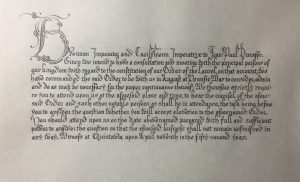 Brennan Imperator and Caoilfhionn Imperatrix to Jean Paul Ducasse.
Since we intend to hold a consultation and meeting with the principal persons of
our kingdom with regard to the constitution of our Order of the Laurel, on that account, we
have commanded the said Order to be with us in August at Pennsic War to consider, ordain
and do as may be necessary for the proper continuance thereof. We therefore strictly require
you to attend upon us at the aforesaid place and time, to hear the counsel of the afore
said Order and such other notable persons as shall be in attendance, the task being before
you to answer the question whether you will accept elevation to the aforenamed Order.
You should attend upon us on the date abovenamed prepared with full and sufficient
power to answer the question so that the aforesaid business shall not remain unfinished in
any way. Witness at Quintavia upon April seventh in the fifty-second year.